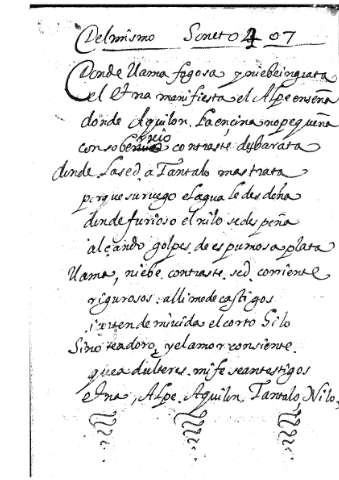 Del mismo Soneto 407
Donde llama fogosa y niebe ingrata
el Etna manifiesta el Alpe enseña
donde Aquilon. la encina no pequeña
con soberuio contraste desbarata
donde la sed. a Tantalo maltrata
porque su ruego el agua le desdeña
donde furioso el nilo se despeña
alçando golpes. de espumosa plata
llama, niebe. contraste. sed. corriente
rigurosos. alli me den castigos
de mi vida el corto hilo
Si no te adoro, y el amor consiente.
que adulteres. mi fe sean testigos
Etna, Alpe. Aquilon Tantalo, Nilo,